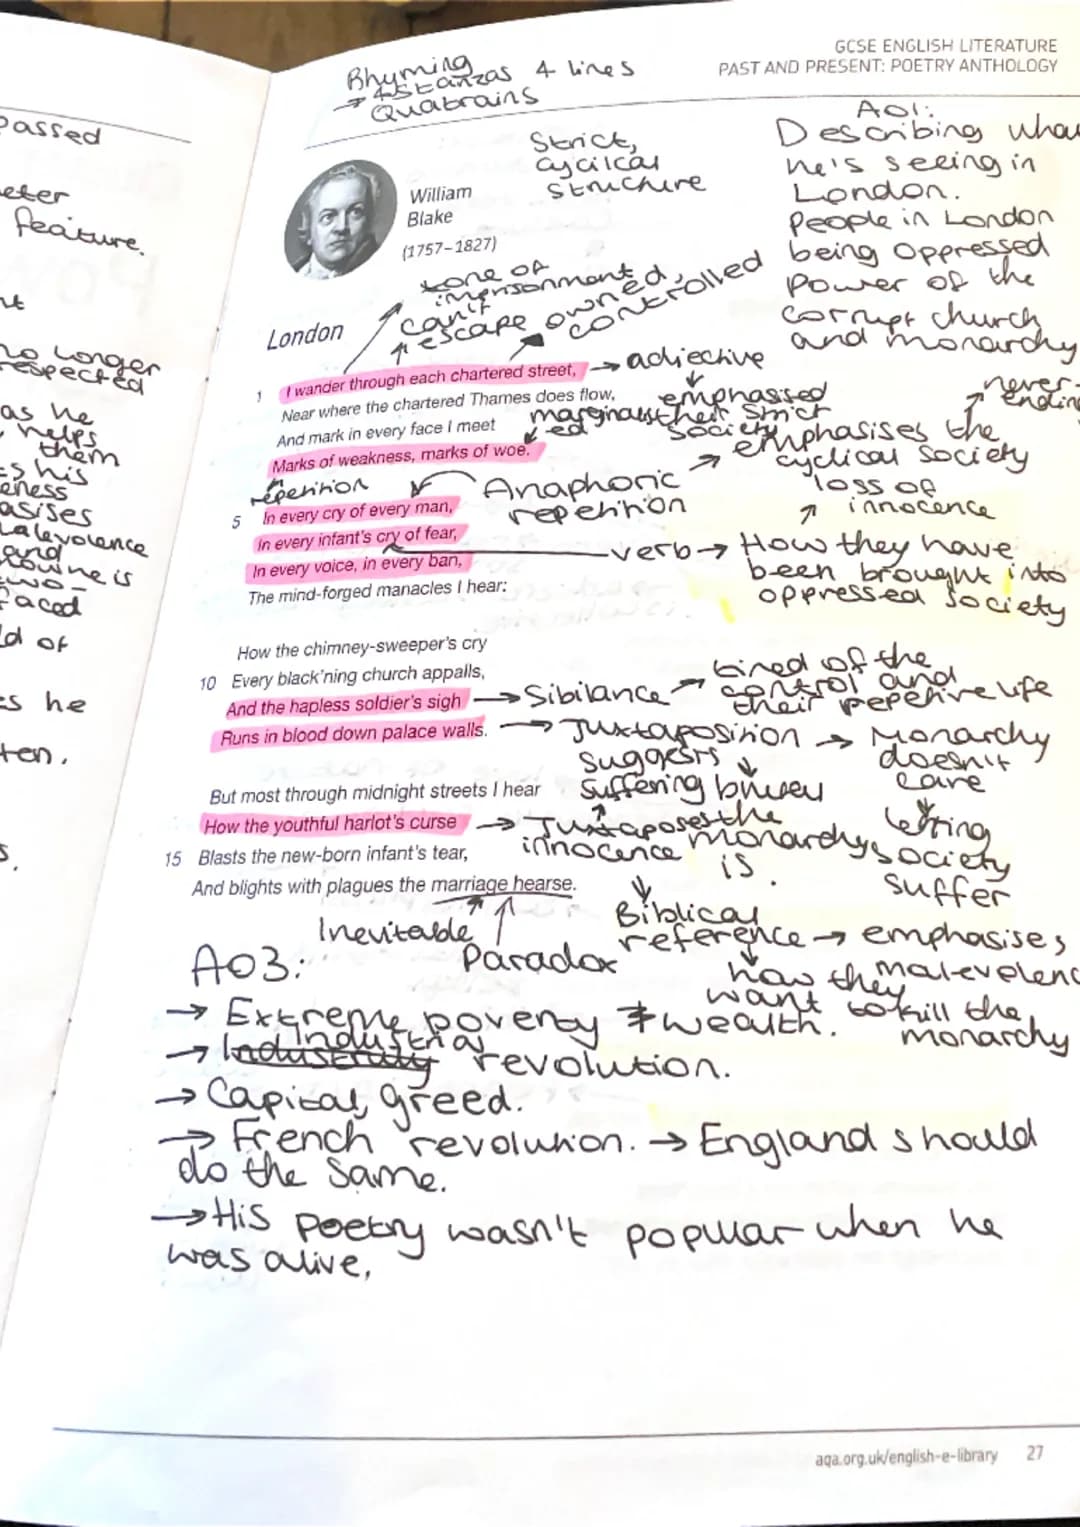 GCSE ENGLISH LITERATURE
PAST AND PRESENT: POETRY ANTHOLOGY
Rhyming
→ 4 stanzas 4 lines
Quatrains
Strict,
cycilcal
structure
William
Blake
(1757–1827)
AO1:
Describing what
he's seeing in
London.
People in London
being oppressed
Power of the
corrupt church
and monarchy
tone of
imprisonment
can't
escape
owned,
controlled
London
1 I wander through each chartered street,
→ adjective
Near where the chartered Thames does flow,
emphasised
their strict
society
And mark in every face I meet
marginalised
Marks of weakness, marks of woe.
repetition
Anaphoric
repetition
→ emphasises the
cyclical society
never-
ending
5 In every cry of every man,
In every infant's cry of fear,
In every voice, in every ban,
The mind-forged manacles I hear:
loss of
innocence
verb → How they have
been brought into
oppressed society
How the chimney-sweeper's cry
10 Every black'ning church appalls,
And the hapless soldier's sigh
→ Sibilance → tired of the
control and
their repetive life
Runs in blood down palace walls.
→ Juxtaposition → Monarchy
doesn't
care
letting
society
suffer
suggests
suffering
But most through midnight streets I hear
How the youthful harlot's curse
→ Juxtaposes the
innocence
monarchy
is.
15 Blasts the new-born infant's tear,
And blights with plagues the marriage hearse.
Inevitable
Paradox
Biblical
reference → emphasises
how they
want to kill the
monarchy
AO3:
→ Extreme poverty ≠ wealth.
→ Industrial revolution.
→ Capital greed.
→ French revolution. → England should
do the same.
→ His poetry wasn't popular when he
was alive.
aqa.org.uk/english-e-library 27
passed
feature.
no longer
respected
as he
helps
them
and
two-
faced